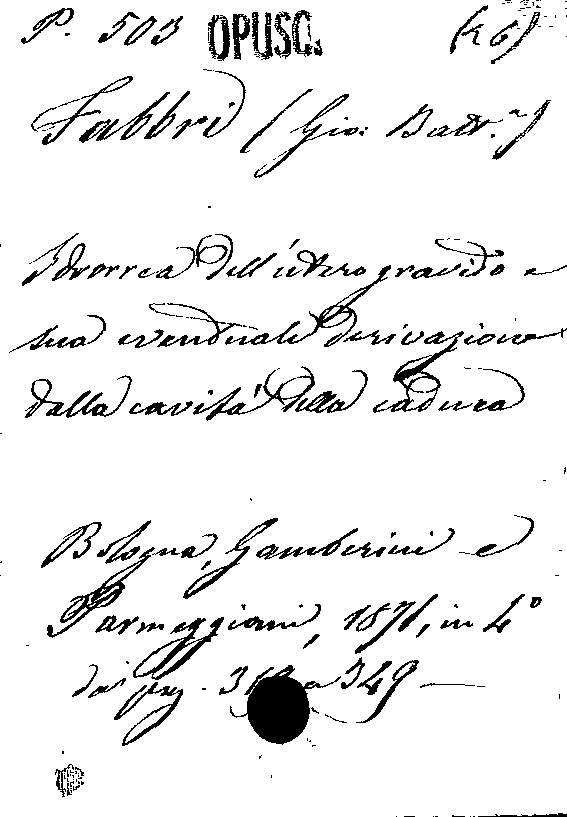 P. 503 OPUSC. (26)
Fabbri (Gio: Batt.a)
Idrorrea dell'útero gravido e
sua eventuale derivazione
dalla cavità della caduca
Bologna, Gamberini e
Parmeggiani, 1871, in 4º
da pag. a 349 —